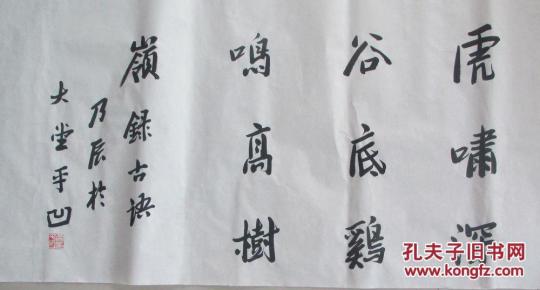 虎嘯深
谷底鷄
鳴髙樹
嶺録古语
乃辰於
大堂平凹
孔夫子旧书网
www.kongfz.com